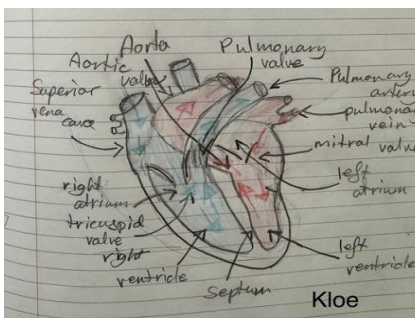 Aorta
Pulmonary
valve
Aortic
valve
Superior
vena
cava
Pulmonary
artery
pulmonary
vein
mitral
valve
left
atrium
right
atrium
tricuspid
valve
right
ventricle
Septum
left
ventricle
Kloe